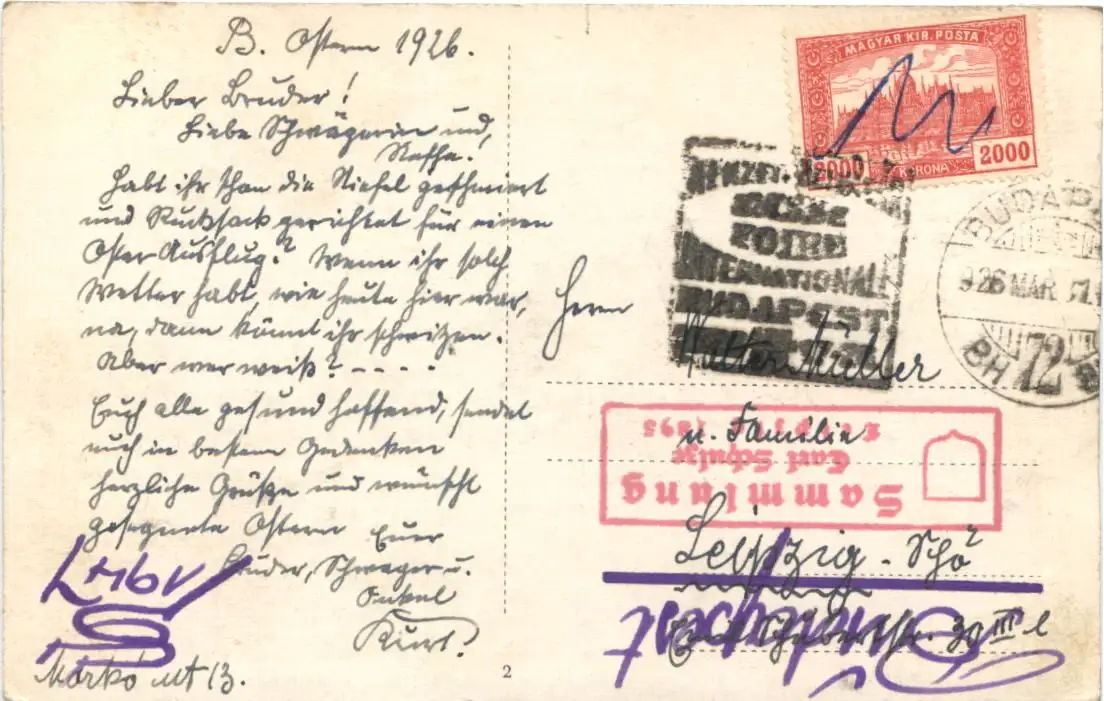 B. Ostern 1926.
Lieber Bruder!
Liebe Schwägerin und,
Neffe.
Habt ihr schon die Stiefel geschmiert
und Rucksack gerichtet für einen
Oster Ausflug? Wenn ihr solch
Wetter habt, wie heute hier war,
na, dann könnt ihr schwitzen.
Aber wer weiß? - - - -
Euch alle gesund hoffend, sendet
auch in bestem Gedenken
herzliche Grüße und wünscht
gesegnete Ostern Euer
Bruder, Schwager u.
Onkel
Kurt.
Markó ut 13.
2
MAGYAR KIR. POSTA
2000 KORONA 2000
FOIRE
INTERNATIONAL
BUDAPEST
BUDAP
926 MAR
72
Herrn
Walter Müller
u. Familie
Sammlung
Carl Schulze
Leipzig 1895
Leipzig - Schö